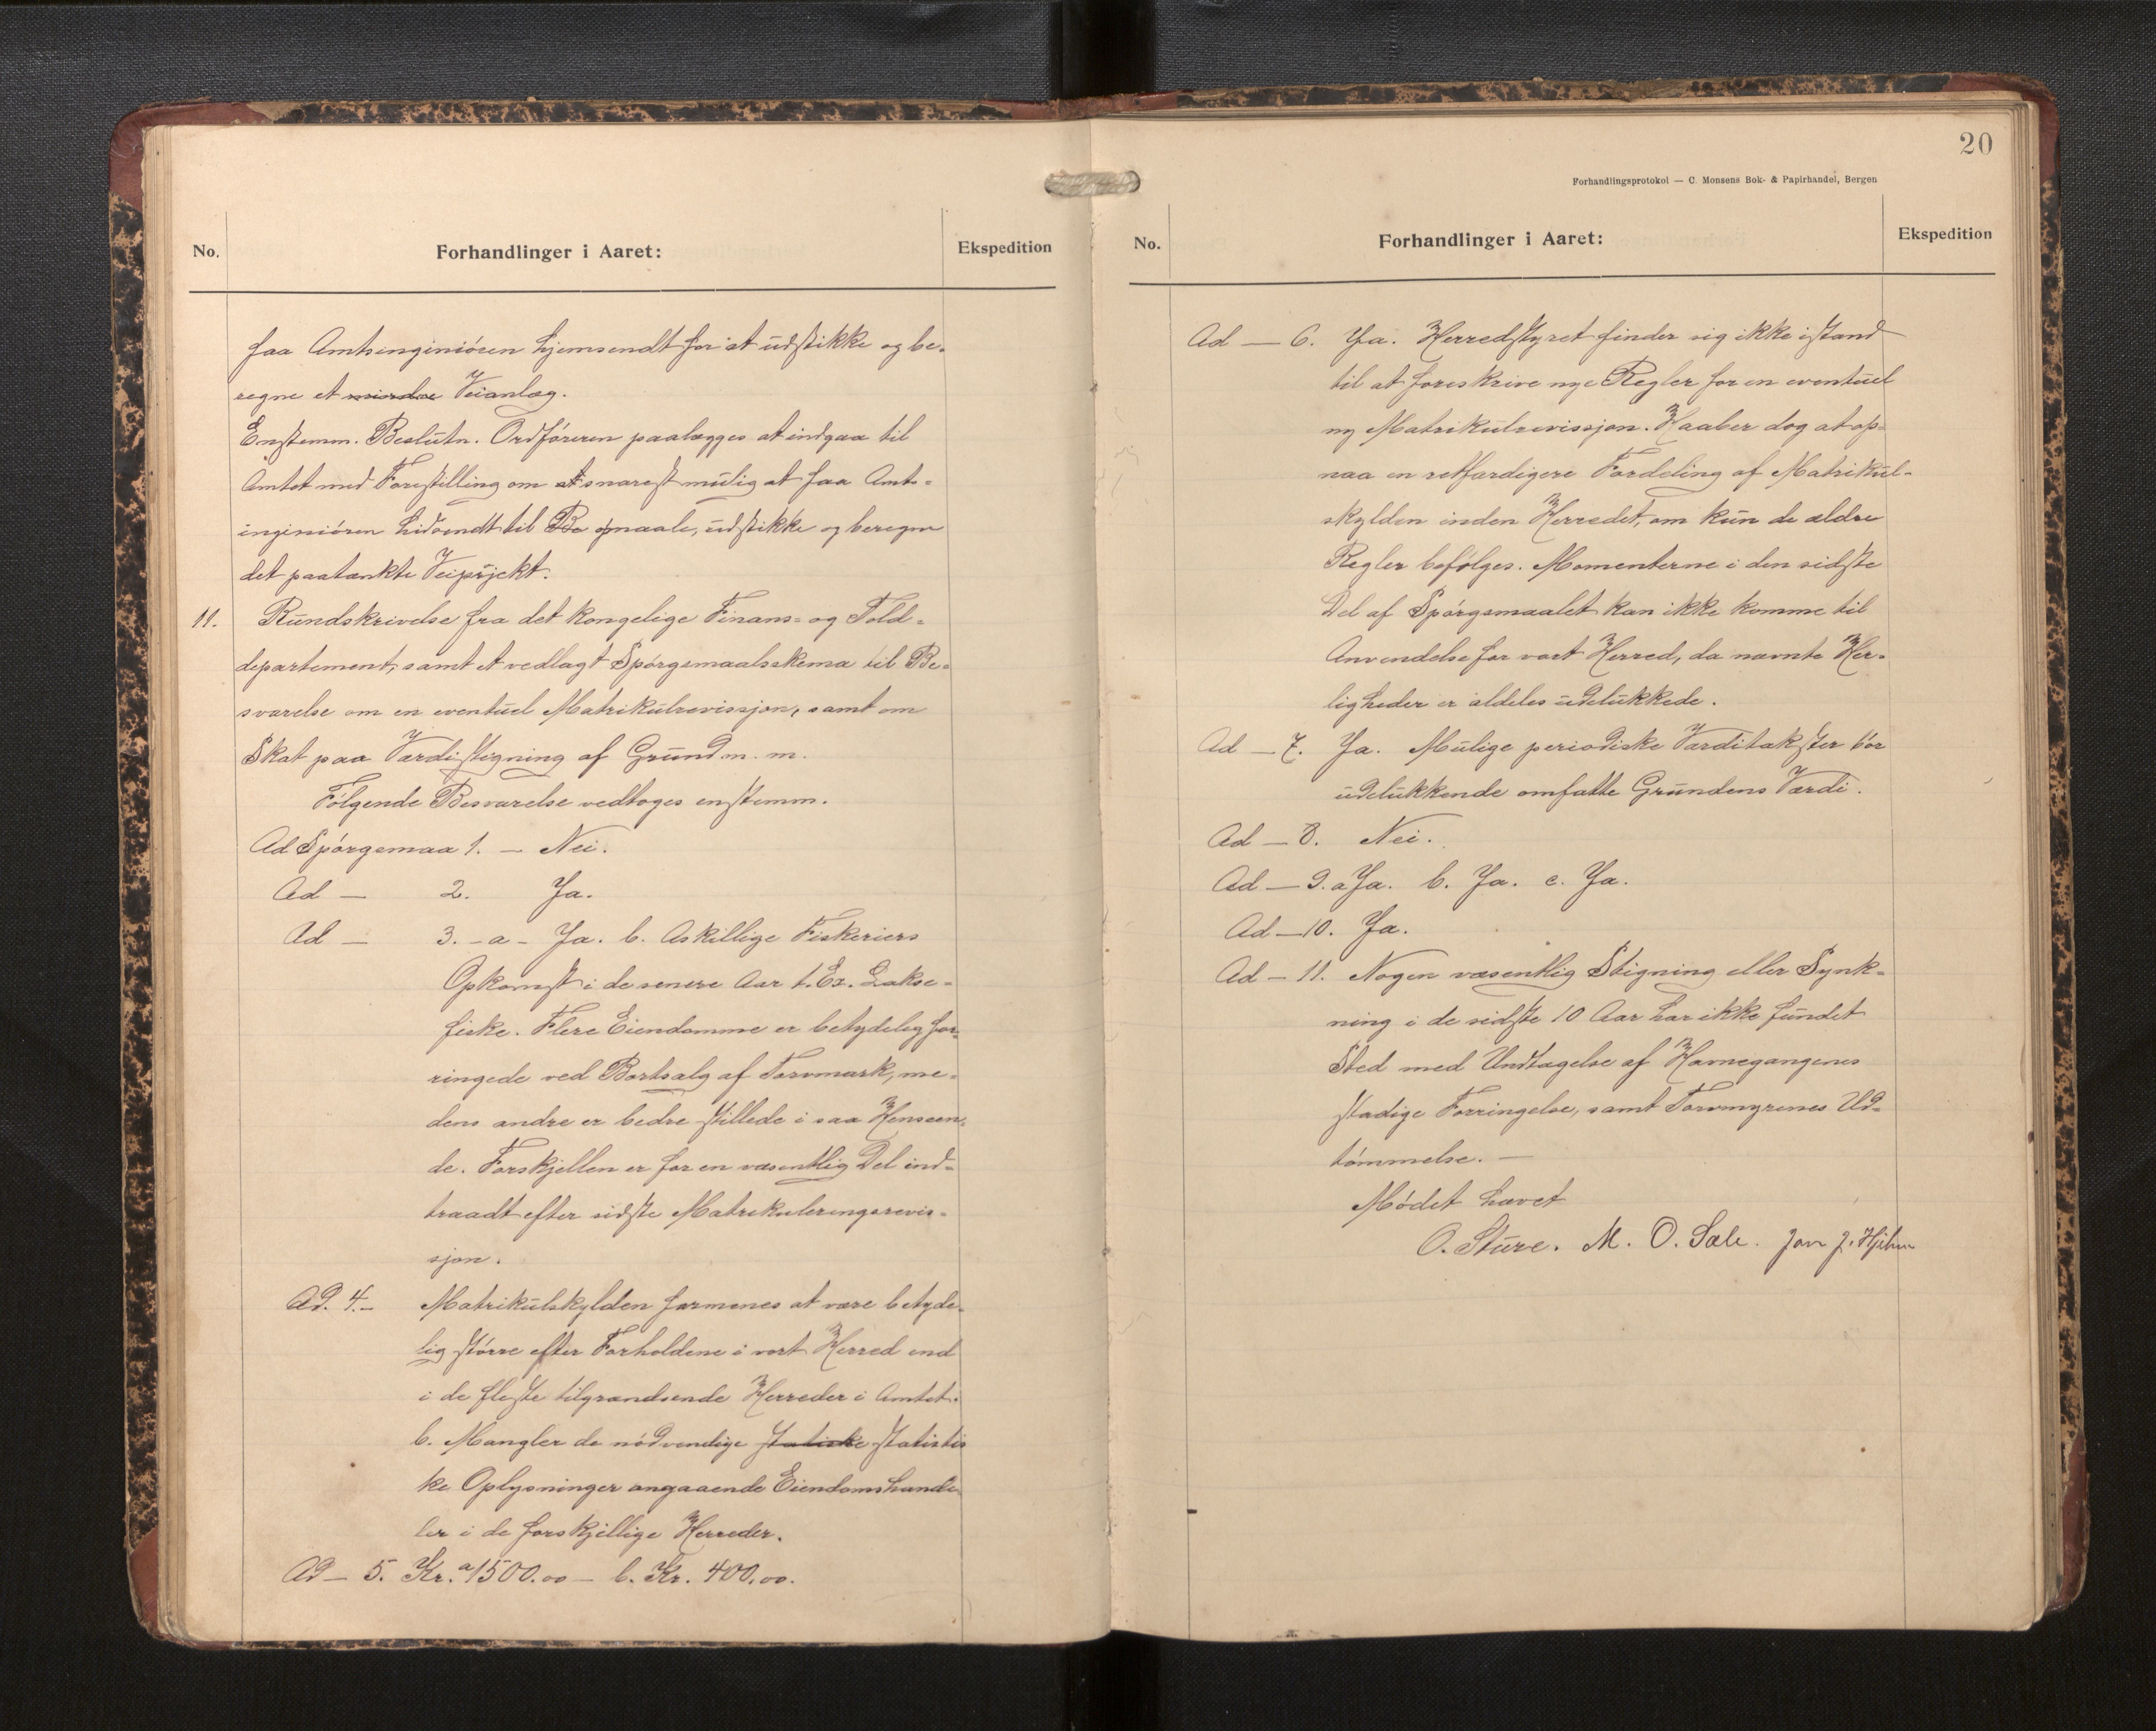 No.
Forhandlinger i Aaret:
Ekspedition
faa Amtsingeniören hjemsendt for at udstikke og be-
regne et mindre Veianlæg.
Enstemm. Beslutn. Ordföreren paalægges at indgaa til
Amtet med Forestilling om at snarest mulig at faa Amts-
ingeniören hidsendt til Be opmaale, udstikke og beregne
det paatænkte Veiprojekt.
11. Rundskrivelse fra det kongelige Finans- og Told-
departement, samt et vedlagt Spörgsmaalsskema til Be-
svarelse om en eventuel Matrikulrevissjon, samt om
Skat paa Værdistigning af Grund m. m.
Fölgende Besvarelse vedtoges enstemm.
Ad Spörgsmaa 1. — Nei.
Ad — 2. Ja.
Ad — 3. - a - Ja. b. Askillige Fiskeriers
Opkomst i de senere Aar t. Ex. Lakse-
fiske. Flere Eiendomme er betydelig for-
ringede ved Bortsalg af Torvmark, me-
dens andre er bedre stillede i saa Henseen-
de. Forskjellen er for en væsentlig Del ind-
traadt efter sidste Matrikuleringsrevis-
sjon.
Ad. 4. — Matrikulskylden formenes at være betyde-
lig större efter Forholdene i vort Herred end
i de fleste tilgrændsende Herreder i Amtet.
b. Mangler de nödvendige statiske statistis
ke Oplysninger angaaende Eiendomshande-
ler i de forskjellige Herreder.
Ad — 5. Kr. a 1500.00 — b. Kr. 400.00.
20
Forhandlingsprotokol — C. Monsens Bok- & Papirhandel, Bergen
No.
Forhandlinger i Aaret:
Ekspedition
Ad — 6. Ja. Herredstyret finder sig ikke istand
til at foreskrive nye Regler for en eventuel
ny Matrikulrevissjon. Haaber dog at op-
naa en retfærdigere Fordeling af Matrikul-
skylden inden Herredet, om kun de ældre
Regler befölges. Momenterne i den sidste
Del af Spörgsmaalet kan ikke komme til
Anvendelse for vort Herred, da nævnte Her-
ligheder er aldeles udelukkede.
Ad — 7. Ja. Mulige periodiske Værditakster bör
udelukkende omfatte Grundens Værdi.
Ad — 8. Nei.
Ad — 9. a Ja. b. Ja. c. Ja.
Ad — 10. Ja.
Ad — 11. Nogen væsentlig Stigning eller Synk-
ning i de sidste 10 Aar har ikke fundet
Sted med Undtagelse af Havnegangenes
stadige Forringelse, samt Torvmyrenes Ud-
tömmelse. —
Mödet hævet
O. Sture. M. O. Sæle. Jon J. Hjelm